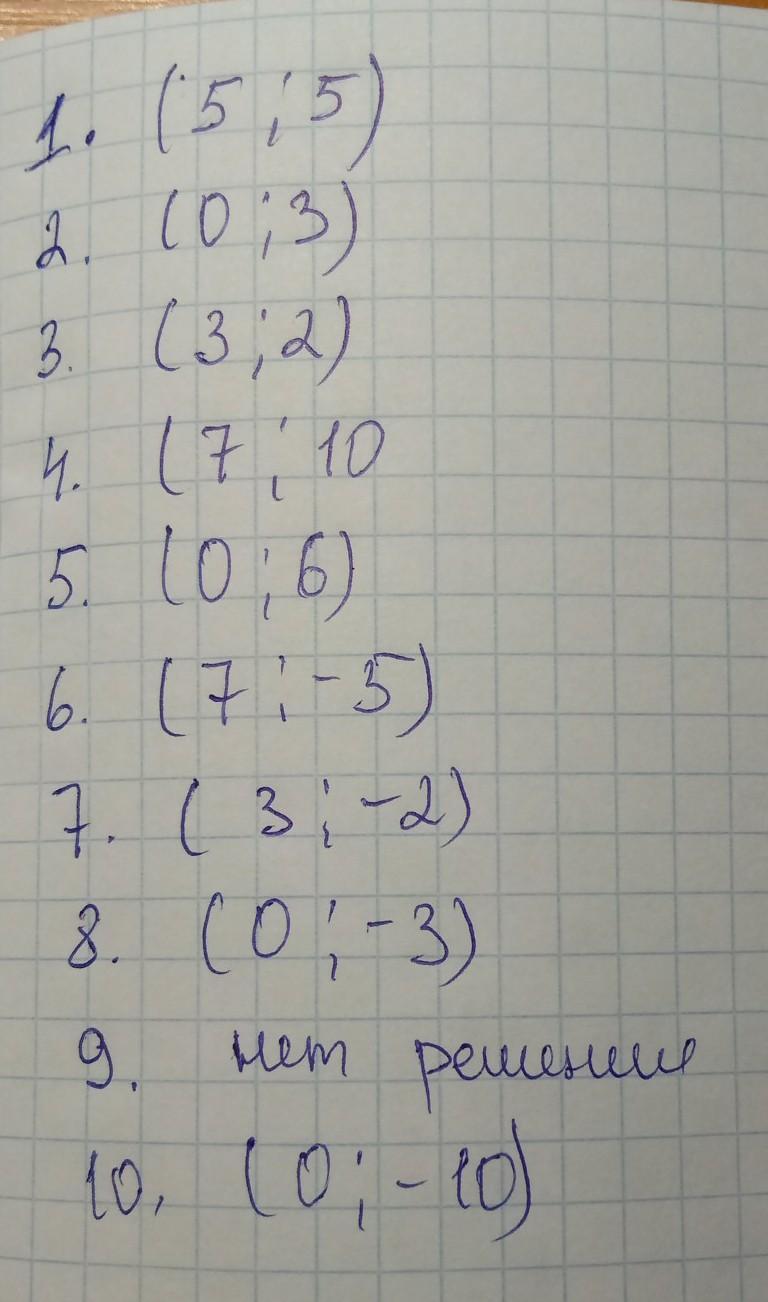 1. (5 ; 5)
2. (0 ; 3)
3. (3 ; 2)
4. (7 ; 10
5. (0 ; 6)
6. (7 ; -5)
7. (3 ; -2)
8. (0 ; -3)
9. нет решении
10. (0 ; -10)